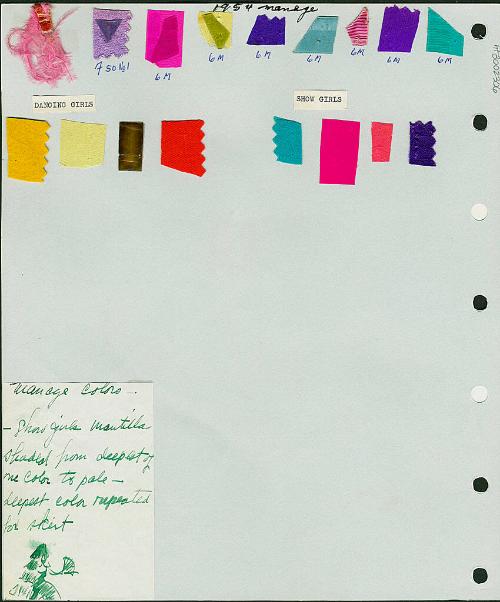 1954 manage
4 sold
6M
6M
6M
6M
6M
6M
6M
DANCING GIRLS
SHOW GIRLS
manage colors -.
- Show girls mantilla
shaded from deepest of
one color to pale -
deepest color repeated
for skirt